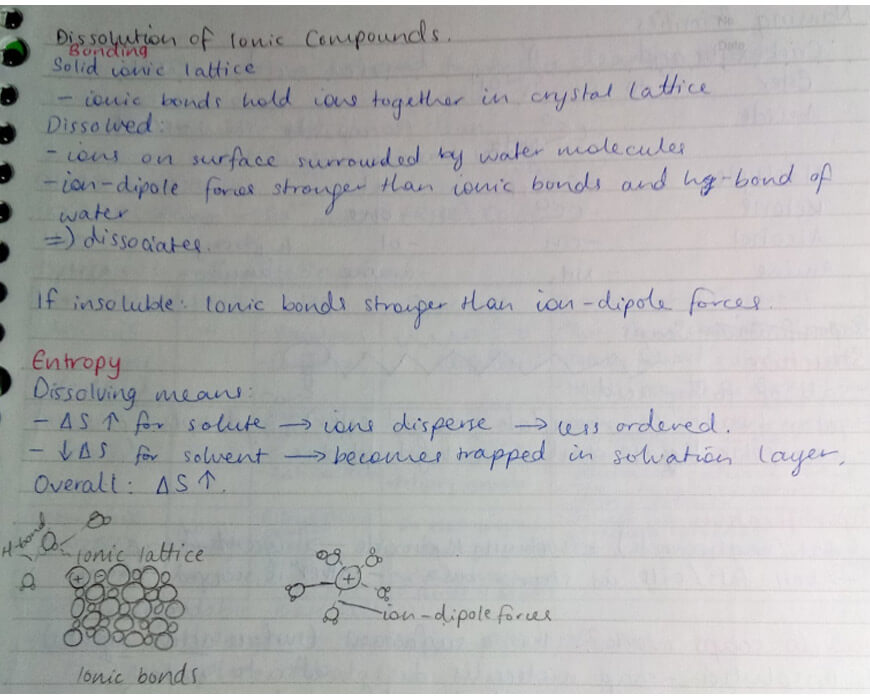 Dissolution of Ionic Compounds.
Bonding
Solid ionic lattice
- ionic bonds hold ions together in crystal lattice
Dissolved:
- ions on surface surrounded by water molecules
- ion-dipole forces stronger than ionic bonds and hg-bond of
water
=) dissociates.
If insoluble: Ionic bonds stronger than ion-dipole forces.
Entropy
Dissolving means:
- ΔS ↑ for solute → ions disperse → less ordered.
- ↓ ΔS for solvent → becomes trapped in solvation layer.
Overall: ΔS ↑.
H-bond
ionic lattice
+ -
+
ion-dipole forces
Ionic bonds